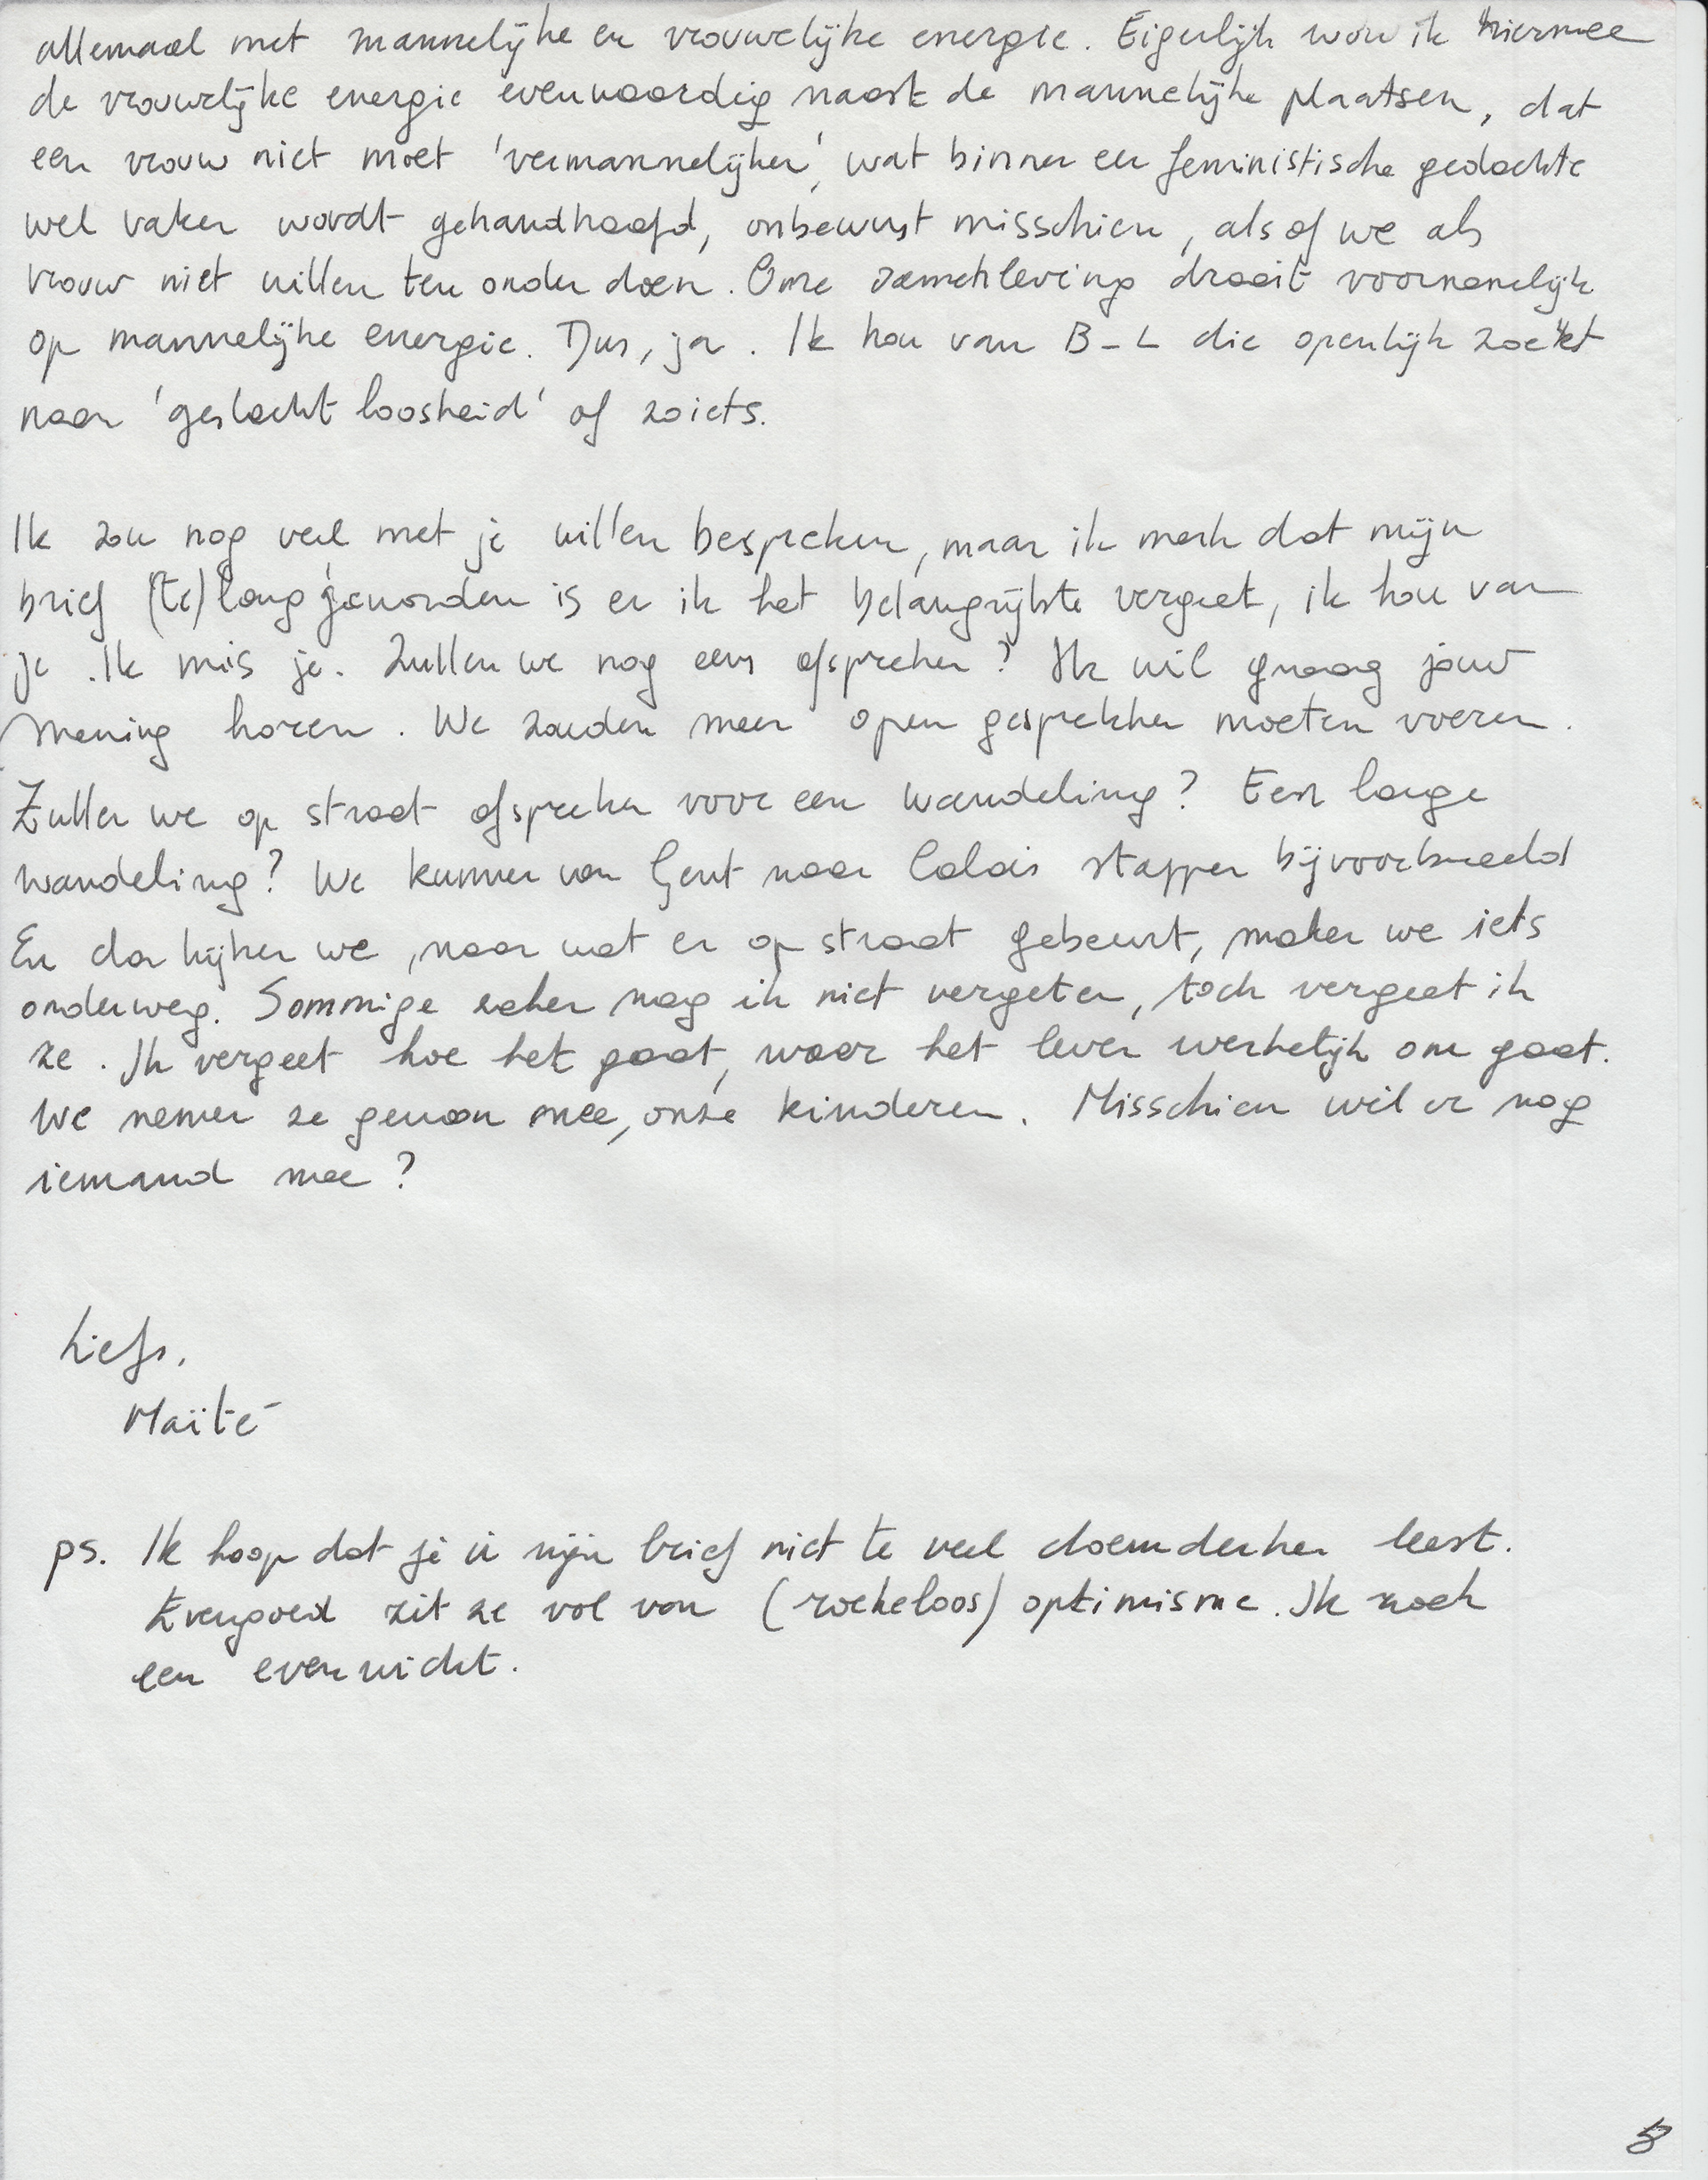 allemaal met mannelijke en vrouwelijke energie. Eigenlijk wou ik hiermee
de vrouwelijke energie evenwaardig naast de mannelijke plaatsen, dat
een vrouw niet moet 'vermannelijken', wat binnen een feministische gedachte
wel vaker wordt gehandhaafd, onbewust misschien, alsof we als
vrouw niet willen ten onder doen. Onze samenleving draait voornamelijk
op mannelijke energie. Dus, ja. Ik hou van B-L die openlijk zoekt
naar 'geslachtloosheid' of zoiets.
Ik zou nog veel met je willen bespreken, maar ik merk dat mijn
brief (te) lang geworden is en ik het belangrijkste vergeet, ik hou van
je. Ik mis je. Zullen we nog eens afspreken? Ik wil graag jouw
mening horen. We zouden meer open gesprekken moeten voeren.
Zullen we op straat afspreken voor een wandeling? Een lange
wandeling? We kunnen van Gent naar Calais stappen bijvoorbeeld
En dan kijken we, naar wat er op straat gebeurt, maken we iets
onderweg. Sommige zaken mag ik niet vergeten, toch vergeet ik
ze. Ik vergeet hoe het gaat, waar het leven werkelijk om gaat.
We nemen ze gewoon mee, onze kinderen. Misschien wil er nog
iemand mee?
Liefs,
Maïté
ps. Ik hoop dat je in mijn brief niet te veel doemdenken leest.
Evengoed zit ze vol van (roekeloos) optimisme. Ik zoek
een evenwicht.